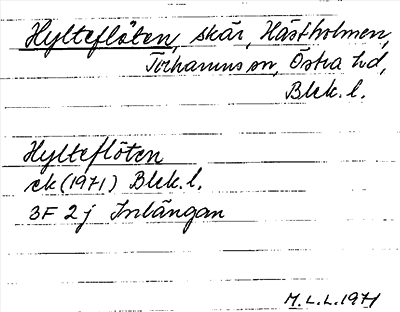 Hylteflöten, skär, Hästholmen,
Torhamns sn, Östra hd,
Blek. l.
Hylteflöten
ek (1971) Blek. l.
3F 2j Inlängan
M. L. L. 1971